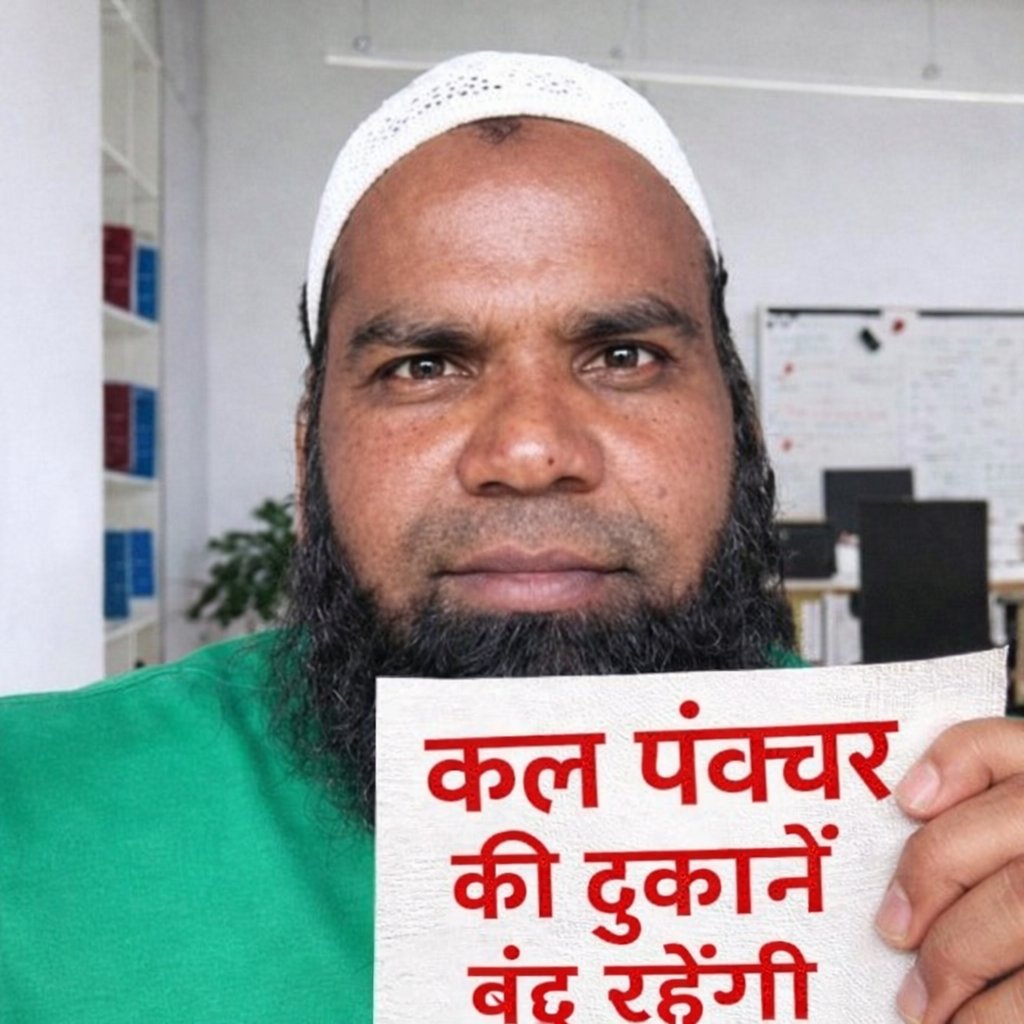 कल पंक्चर
की दुकानें
बंद रहेंगी